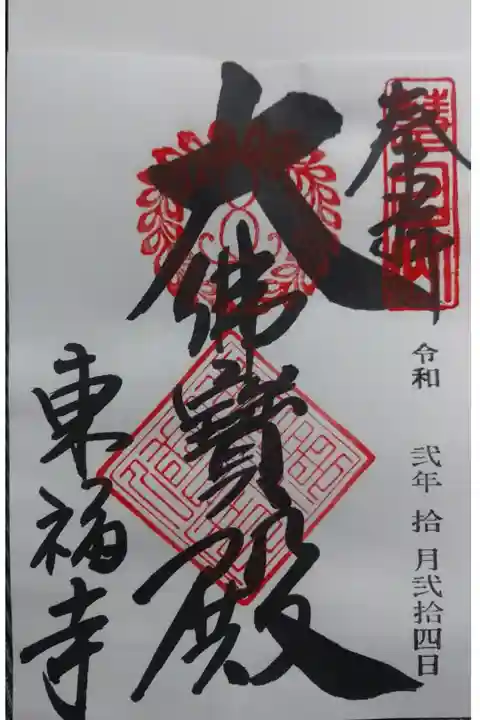 奉拝
令和 弐年 拾月弐拾四日
大佛寳殿
東福寺